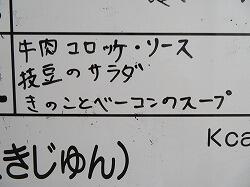 牛肉コロッケ・ソース
枝豆のサラダ
きのことベーコンのスープ
Kca
きじゅん)